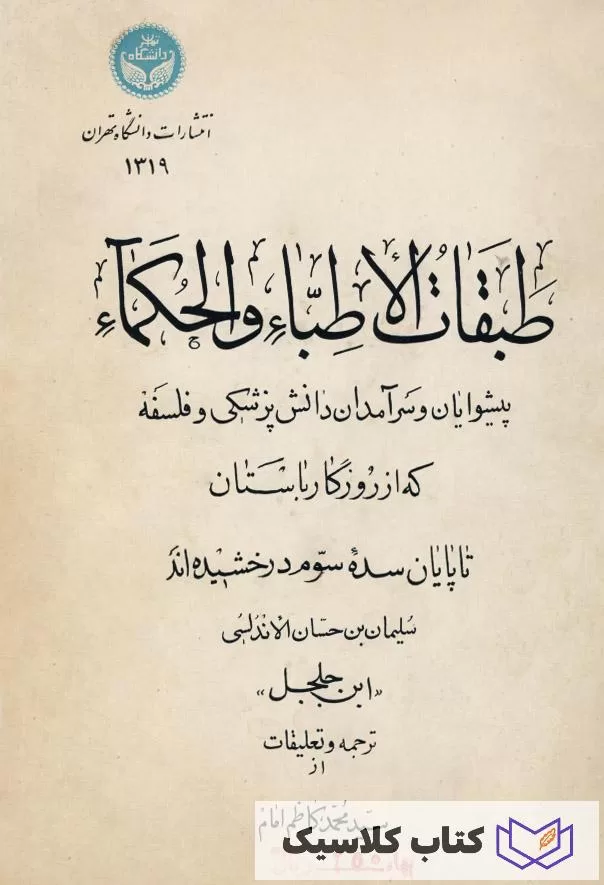 دانشگاه تهران
انتشارات دانشگاه تهران
۱۳۱۹
طَبَقاتُ الأَطِبّاءِ وَالحُكَمآءِ
پیشوایان و سرآمدان دانش پزشکی و فلسفه
که از روزگار باستان
تا پایان سدهٔ سوّم درخشیده‌اند
سلیمان بن حسّان الاندلسی
«ابن جلجل»
ترجمه و تعلیقات
از
سیّد محمّد کاظم امام
کتاب کلاسیک